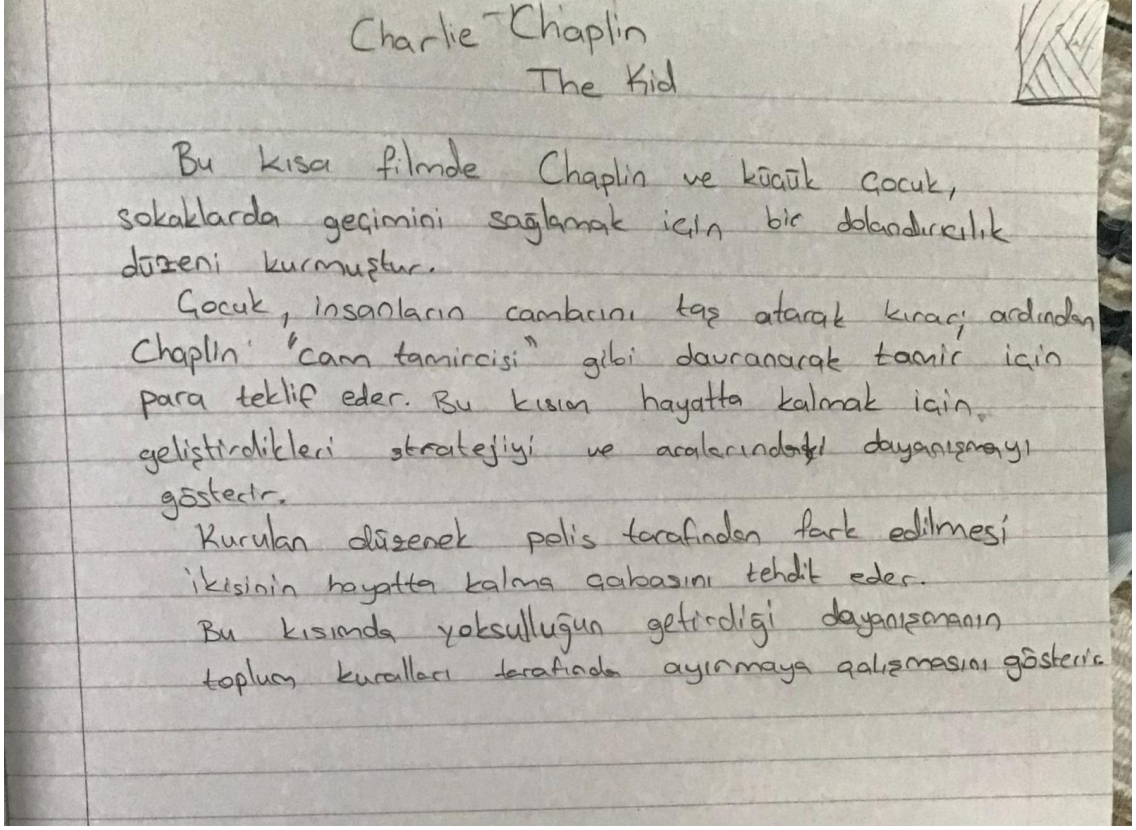 Charlie Chaplin
The Kid
Bu kısa filmde Chaplin ve küçük çocuk,
sokaklarda geçimini sağlamak için bir dolandırıcılık
düzeni kurmuştur.
Çocuk, insanların camlarını taş atarak kırar; ardından
Chaplin "cam tamircisi" gibi davranarak tamir için
para teklif eder. Bu kısım hayatta kalmak için
geliştirdikleri stratejiyi ve aralarındaki dayanışmayı
gösterir.
Kurulan düzenek polis tarafından fark edilmesi
ikisinin hayatta kalma çabasını tehdit eder.
Bu kısımda yoksulluğun getirdiği dayanışmanın
toplum kuralları tarafında ayırmaya çalışmasını gösterir